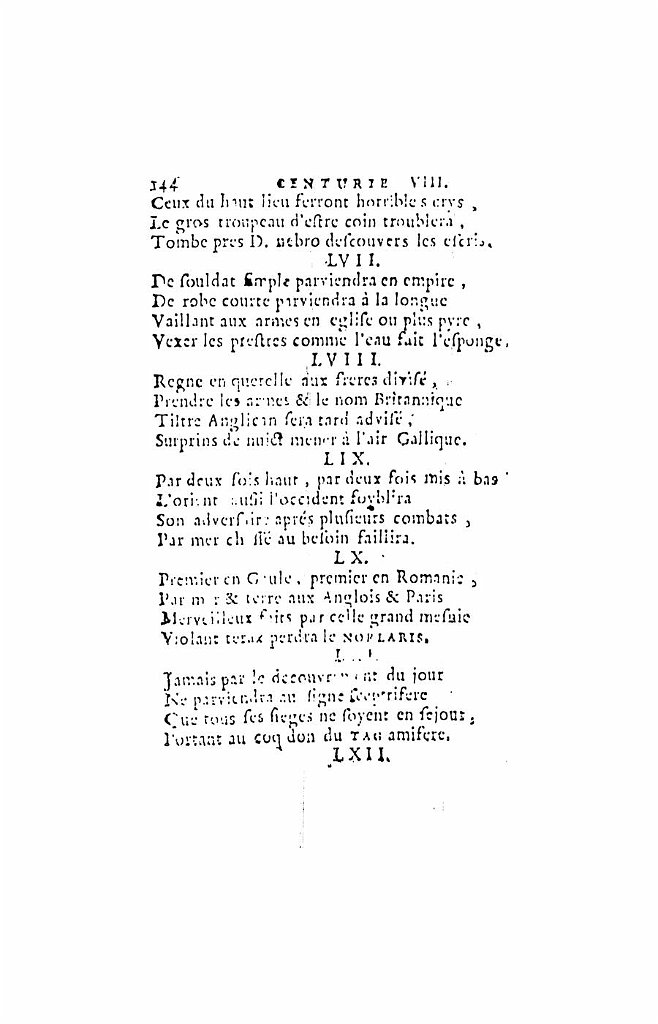 144 CENTURIE VIII.
Ceux du haut lieu ferront horribles crys ,
Le gros troupeau d'eſtre coin troublera ,
Tombe pres D. nebro deſcouvers les eſcris.
LVII.
De ſouldat ſimple parviendra en empire ,
De robe courte parviendra à la longue
Vaillant aux armes en egliſe ou plus pyre ,
Vexer les preſtres comme l'eau fait l'eſponge.
LVIII.
Regne en querelle aux freres diviſé ,
Prendre les armes & le nom Britannique
Tiltre Anglican ſera tard adviſé ,
Surprins de nuict mener à l'air Gallique.
LIX.
Par deux fois haut , par deux fois mis à bas
L'orient auſſi l'occident foyblira
Son adverſaire aprés pluſieurs combats ,
Par mer chaſſé au beſoin faillira.
LX.
Premier en Gaule , premier en Romanie ,
Par mer & terre aux Anglois & Paris
Merveilleux faits par celle grand meſnie
Violant terax perdra le NORLARIS.
Jamais par le decouvrement du jour
Ne parviendra au ſigne ſceptrifere
Que tous ſes ſieges ne ſoyent en ſejour ,
Portant au coq don du TAG amifere.
LXII.